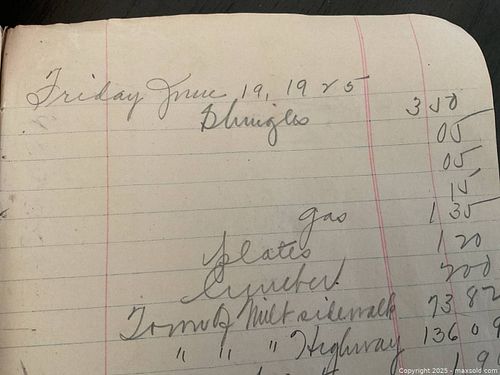 Friday June 19, 1925
Shingles 350
05
05
15
gas 135
plates 120
lumber 200
Milt sidewalk 73 82
" " " Highway 136 09
19
Copyright 2025 - maxsold.com